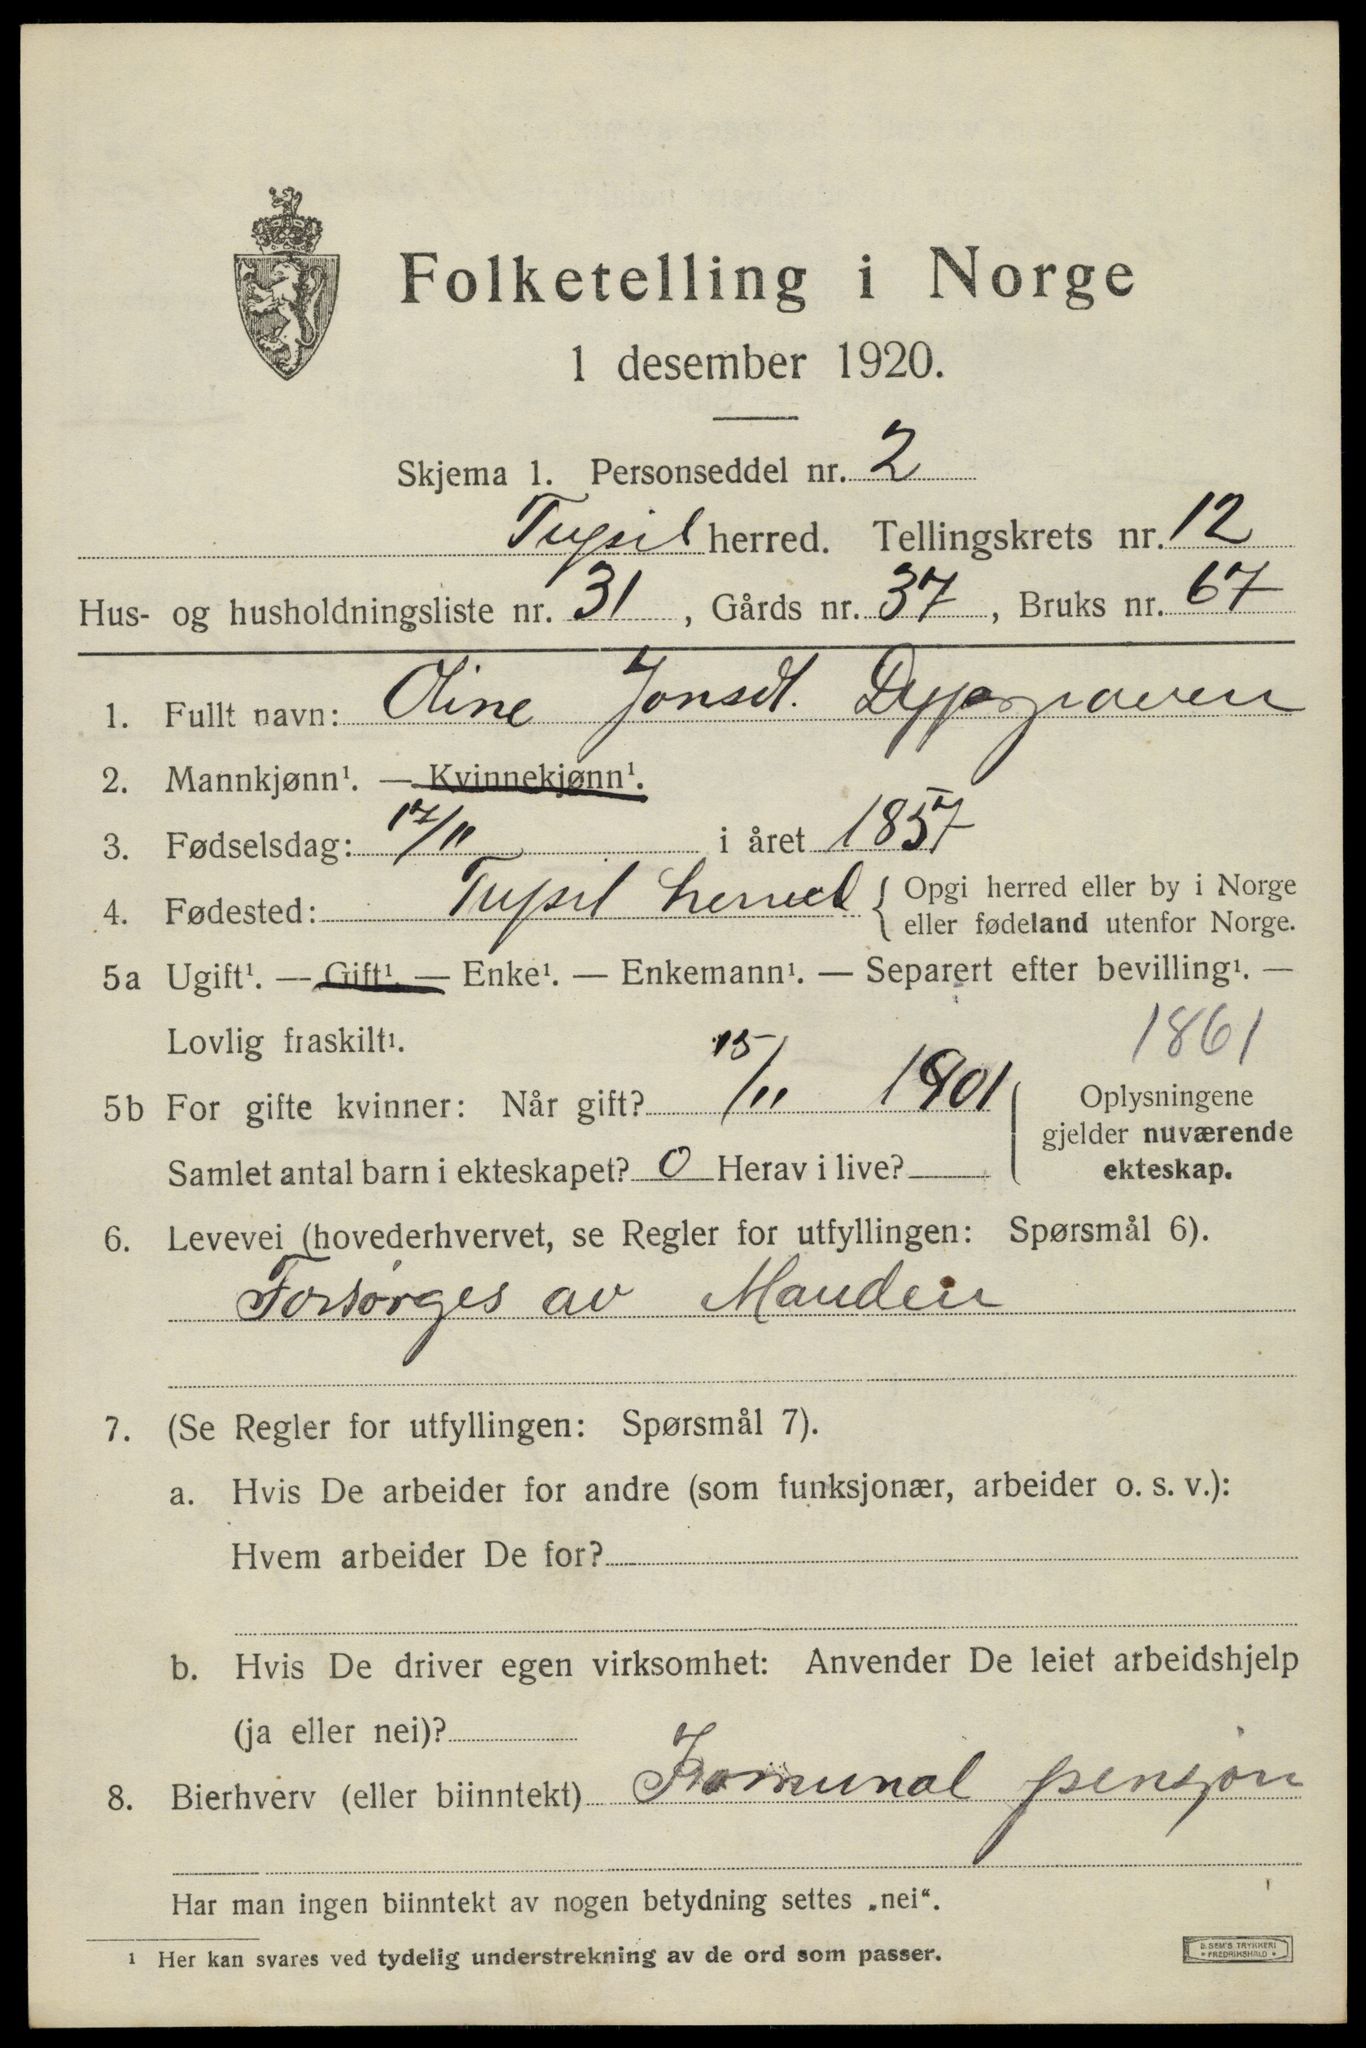 Folketelling i Norge
1 desember 1920.
Skjema 1. Personseddel nr. 2
Trysil herred. Tellingskrets nr. 12
Hus- og husholdningsliste nr. 31, Gårds nr. 37, Bruks nr. 67
1. Fullt navn: Oline Jonsdt. Dypgraven
2. Mannkjønn¹. — Kvinnekjønn¹.
3. Fødselsdag: 17/11 i året 1857
4. Fødested: Trysil herred { Opgi herred eller by i Norge
eller fødeland utenfor Norge.
5a Ugift¹. — Gift¹. — Enke¹. — Enkemann¹. — Separert efter bevilling¹. —
Lovlig fraskilt¹.
1861
5b For gifte kvinner: Når gift? 15/11 1901
Samlet antal barn i ekteskapet? 0 Herav i live?
Oplysningene
gjelder nuværende
ekteskap.
6. Levevei (hovederhvervet, se Regler for utfyllingen: Spørsmål 6).
Forsørges av Manden
7. (Se Regler for utfyllingen: Spørsmål 7).
a. Hvis De arbeider for andre (som funksjonær, arbeider o. s. v.):
Hvem arbeider De for?
b. Hvis De driver egen virksomhet: Anvender De leiet arbeidshjelp
(ja eller nei)?
8. Bierhverv (eller biinntekt) Komunal pensjon
Har man ingen biinntekt av nogen betydning settes „nei“.
¹ Her kan svares ved tydelig understrekning av de ord som passer.
D. SEM'S TRYKKERI
• FREDRIKSHALD •